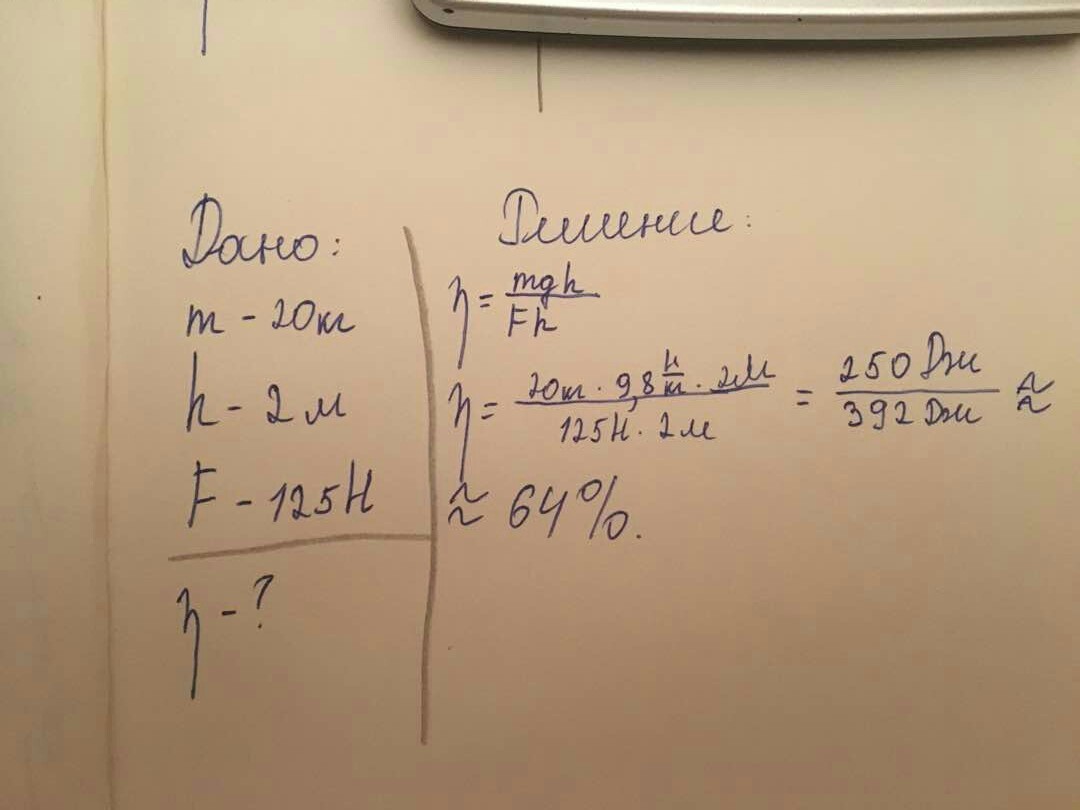 Дано:
m - 20кг
h - 2м
F - 125Н
η - ?
Решение:
η = mgh / Fh
η = 20кг · 9,8 Н/кг · 2м / 125Н · 2м = 250 Дж / 392 Дж ≈
≈ 64%.